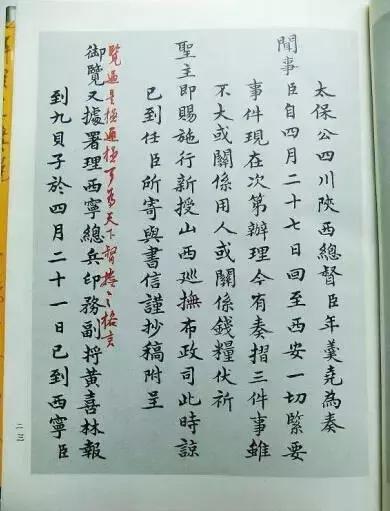 太保公四川陝西總督臣年羹堯為奏
聞事臣自四月二十七日回至西安一切緊要
事件現在次第辦理今有奏摺三件事雖
不大或關係用人或關係錢糧伏祈
聖主即賜施行新授山西廵撫布政司此時諒
已到任臣所寄與書信謹抄稿附呈
覽過是極通極可為天下督撫之格言
御覽又據署理西寧總兵印務副將黃喜林報
到九貝子於四月二十一日已到西寧臣
二三